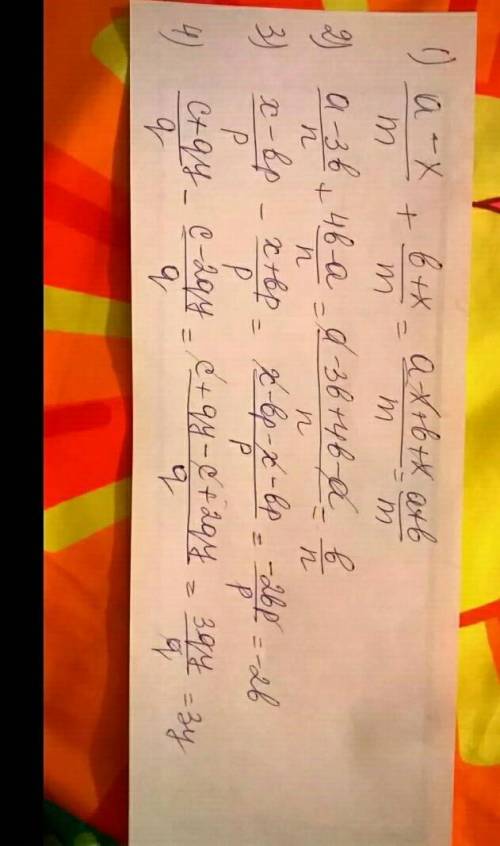 1) (a - x)/m + (b + x)/m = (a - x + b + x)/m = (a + b)/m
2) (a - 3b)/n + (4b - a)/n = (a - 3b + 4b - a)/n = b/n
3) (x - bp)/p - (x + bp)/p = (x - bp - x - bp)/p = (-2bp)/p = -2b
4) (c + qy)/q - (c - 2qy)/q = (c + qy - c + 2qy)/q = 3qy/q = 3y